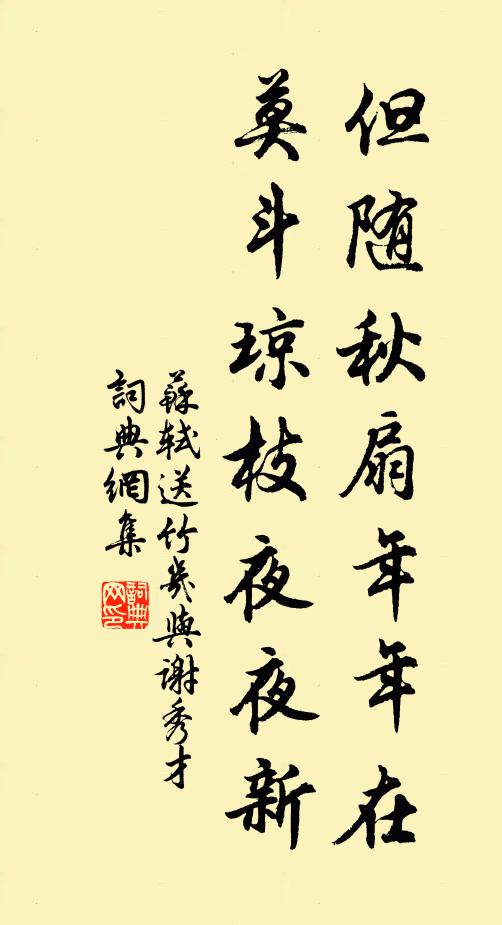 但随秋扇年年在
莫斗琼枝夜夜新
蘇軾送竹几與謝秀才
詞典網集
詞典網印